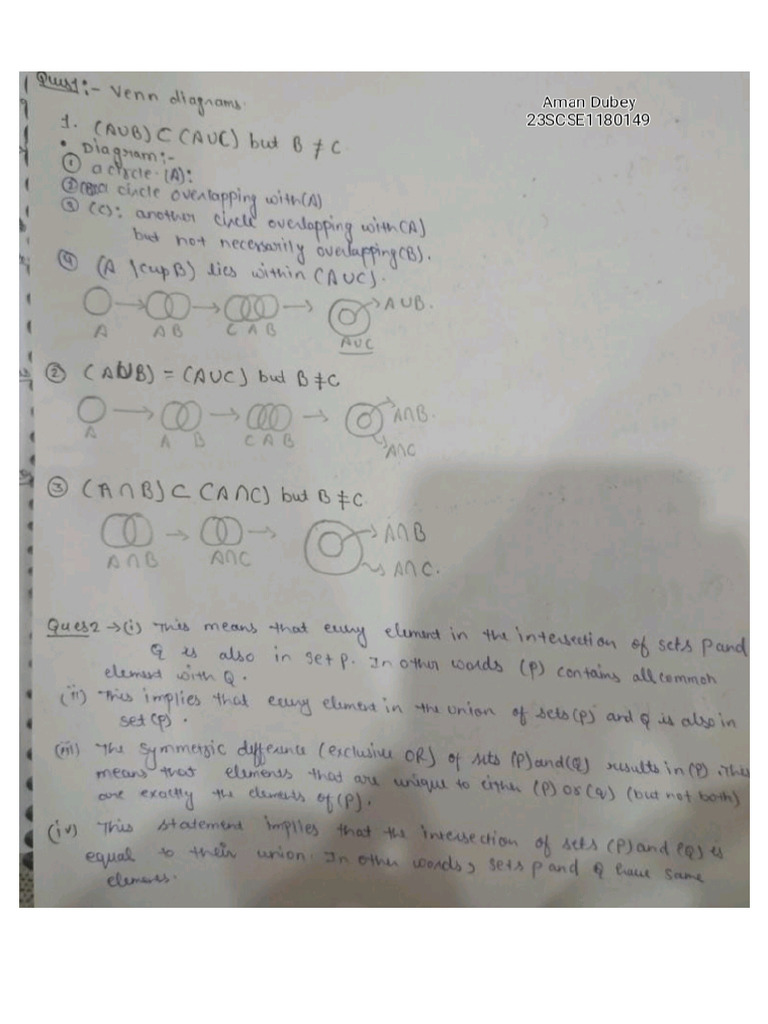 Ques1:- Venn diagrams.
Aman Dubey
23SCSE1180149
1. (AUB) ⊂ (AUC) but B ≠ C
• Diagram:-
① a circle (A):
② (B) a circle overlapping with (A)
③ (C): another circle overlapping with (A)
but not necessarily overlapping (B).
④ (A \cup B) lies within (AUC).
A
A B
C A B
AUB.
AUC
② (AUB) = (AUC) but B ≠ C
A
A B
C A B
A∩B.
A∩C
③ (A∩B) ⊂ (A∩C) but B ≠ C
A∩B
A∩C
A∩B
A∩C.
Ques2 → (i) This means that every element in the intersection of sets P and
Q is also in set P. In other words (P) contains all common
element with Q.
(ii) This implies that every element in the union of sets (P) and Q is also in
set (P).
(iii) The symmetric difference (exclusive OR) of sets (P) and (Q) results in (P).
means that elements that are unique to either (P) or (Q) (but not both)
are exactly the elements of (P).
(iv) This statement implies that the intersection of sets (P) and (Q) is
equal to their union. In other words, sets P and Q have same
elements.